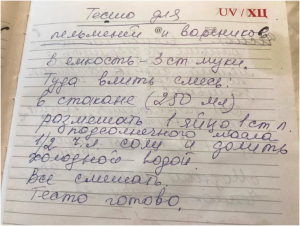 Тесто для
UV / ХЦ
пельменей и вареников
В емкость - 3 ст муки.
Туда влить смесь:
в стакане (250 мл)
размешать 1 яйцо 1 ст л.
подсолнечного масла
1/2 ч л соли и долить
холодной водой.
Все смешать.
Тесто готово.